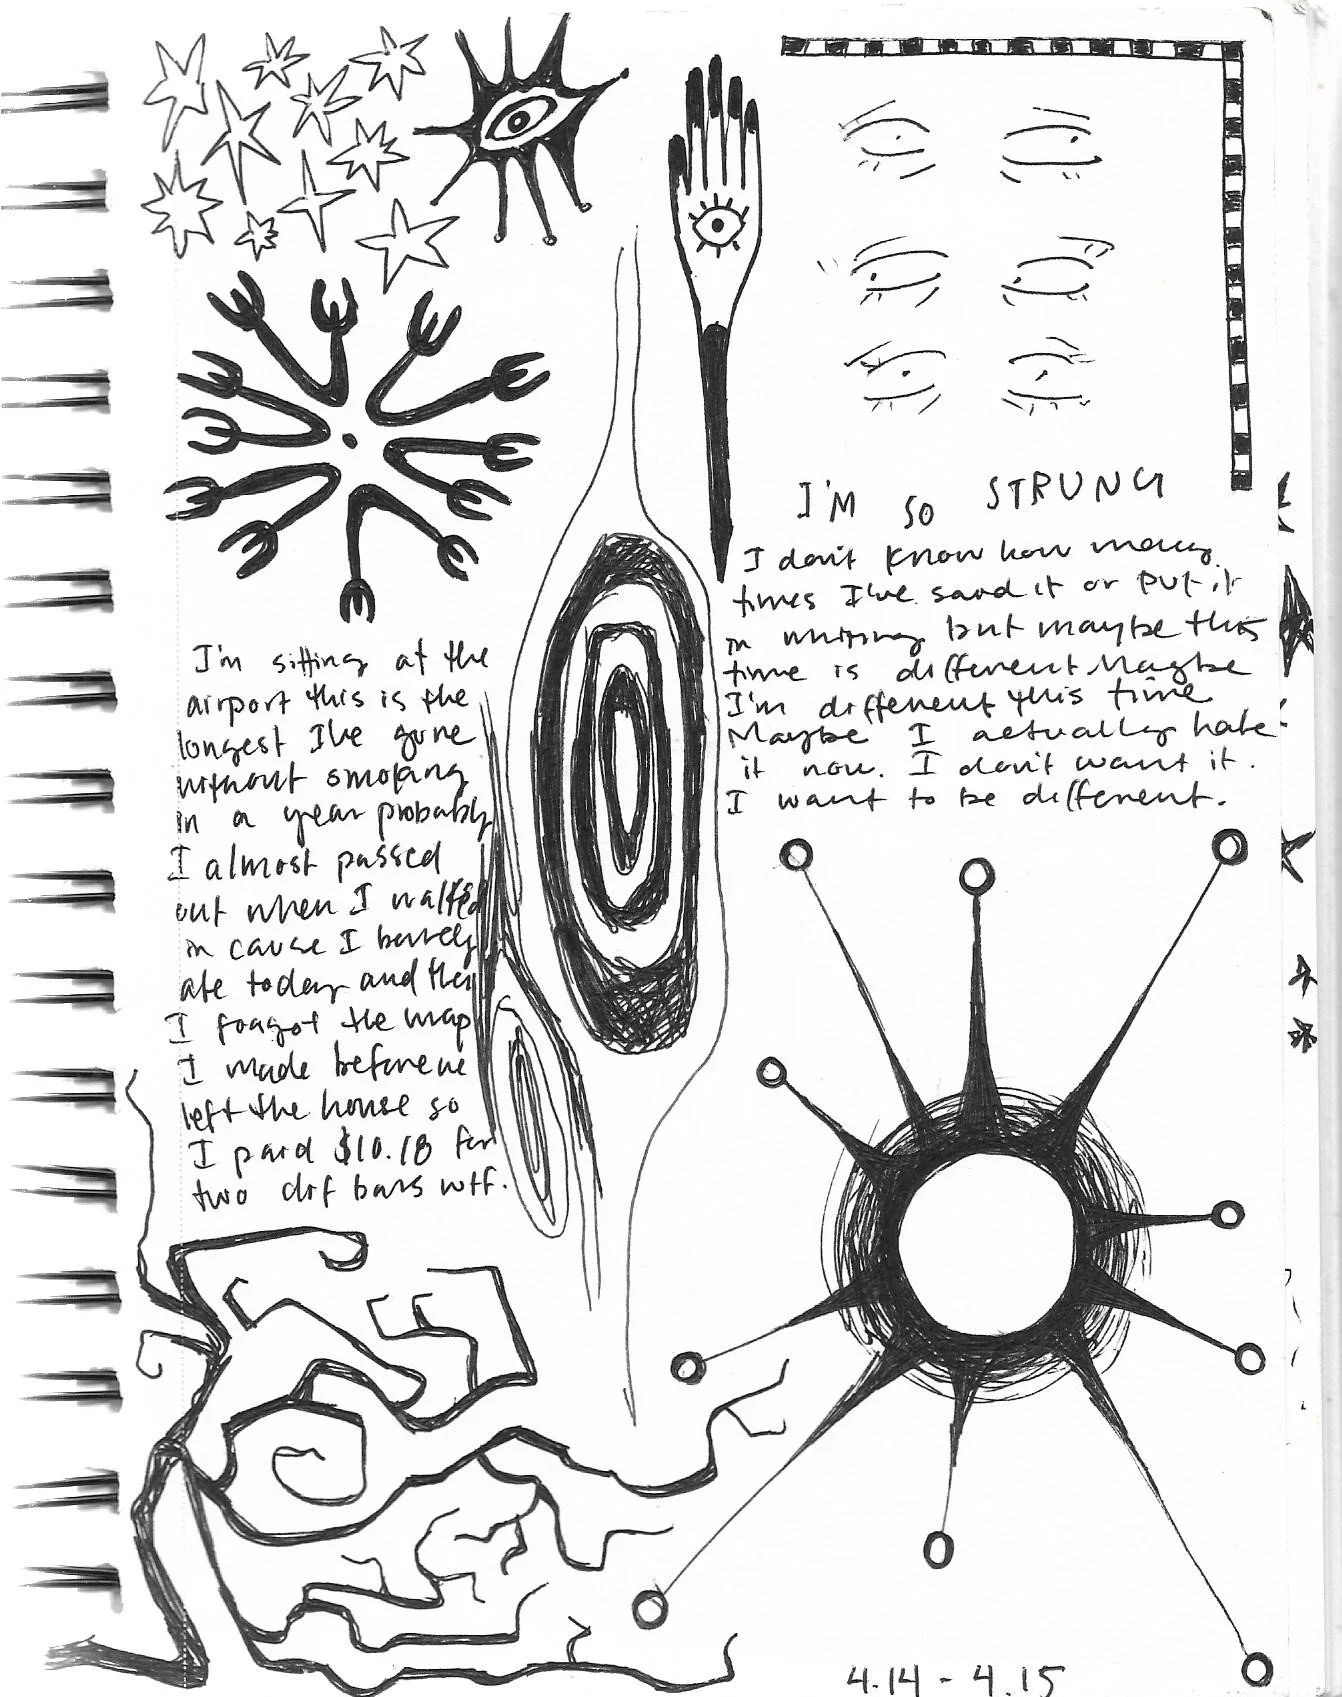 I'm sitting at the
airport this is the
longest I've gone
without smoking
in a year probably
I almost passed
out when I walked
in cause I barely
ate today and then
I forgot the map
I made before we
left the house so
I paid $10.18 for
two clif bars wtf.
I'M SO STRUNG
I don't know how many
times I've said it or put it
in writing but maybe this
time is different. Maybe
I'm different this time
Maybe I actually hate
it now. I don't want it.
I want to be different.
4.14 - 4.15